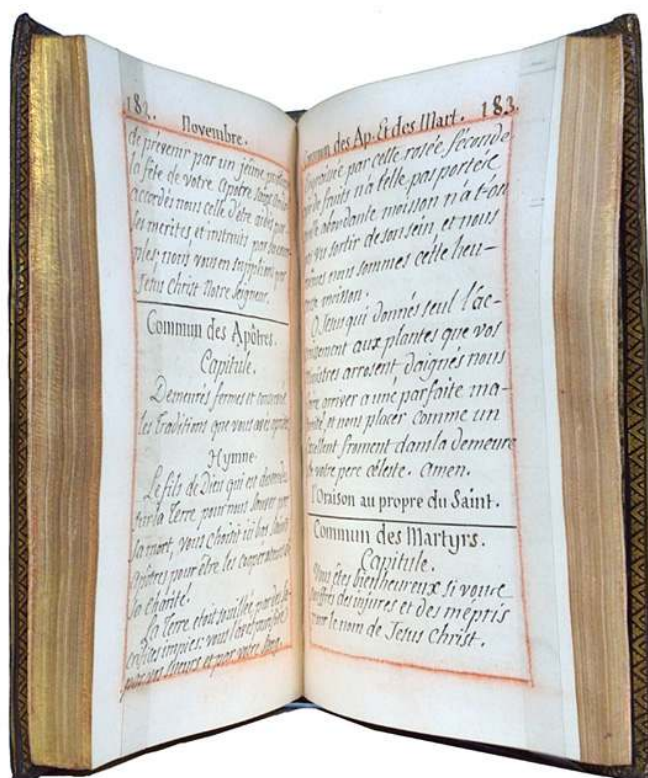 182.
Novembre.
de prévenir par un jeûne
la fête de votre Apotre Saint André
accordés nous celle d'être aidés par
ses merites et instruits par ses exem-
ples; nous vous en supplions par
Jesus Christ Notre Seigneur.
Commun des Apôtres.
Capitule.
Demeurés fermes et conservés
les Traditions que vous avés apprises
Hymne.
Le fils de Dieu qui est descendu
sur la Terre pour nous sauver par
sa mort, vous choisit ici bas Saints
Apôtres pour être les cooperateurs de
sa charité.
La Terre etoit souillée par des sa-
crifices impies: vous l'avés purifiée
par vos sueurs et par votre sang.
Commun des Ap. Et des Mart. 183.
par cette rosée féconde
de fruits n'a telle pas portée
abondante moisson n'a t-on
vu sortir de son sein, et nous
mêmes nous sommes cette heu-
reuse moisson.
O Jesus qui donnés seul l'ac-
croissement aux plantes que vos
ministres arrosent, daignés nous
faire arriver a une parfaite ma-
turité, et nous placer comme un
excellent froment dans la demeure
de votre pere céleste. amen.
l'Oraison au propre du Saint.
Commun des Martyrs.
Capitule.
Vous êtes bienheureux si vous
souffrés des injures et des mepris
pour le nom de Jesus Christ.